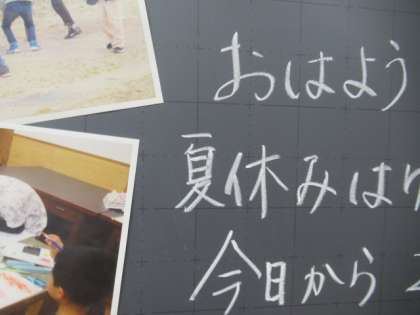 おはよう
夏休みは
今日から